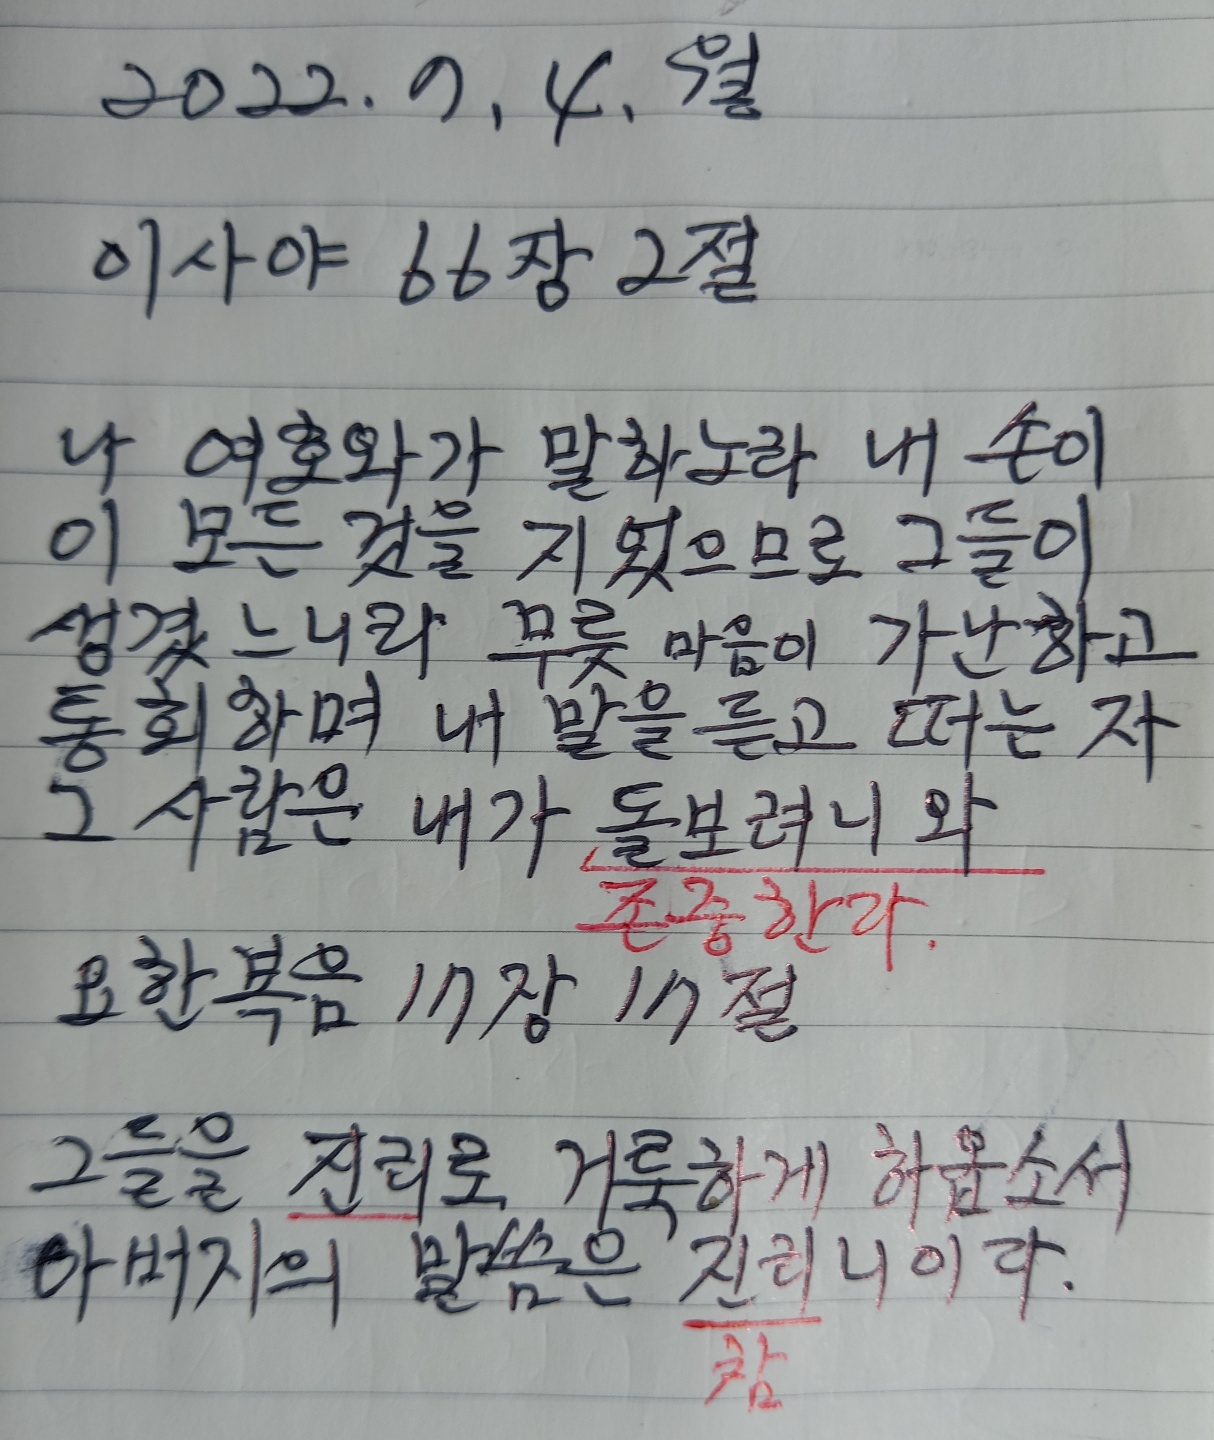 2022. 7. 4. 월
이사야 66장 2절
나 여호와가 말하노라 내 손이
이 모든 것을 지었으므로 그들이
생겼느니라 무릇 마음이 가난하고
통회하며 내 말을 듣고 떠는 자
그 사람은 내가 돌보려니와
존중한다.
요한복음 17장 17절
그들을 진리로 거룩하게 하옵소서
아버지의 말씀은 진리니이다.
참